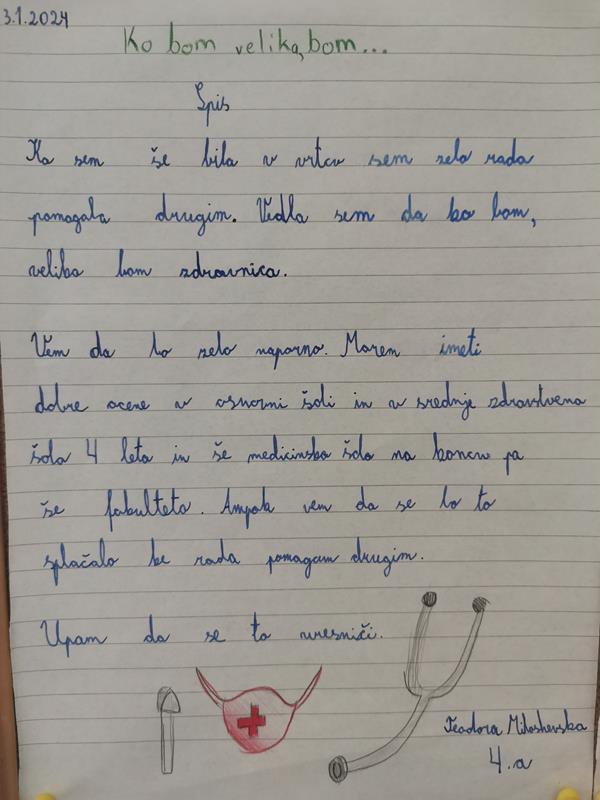 3.1.2024
Ko bom velika, bom...
Spis
Ko sem še bila v vrtcu sem zelo rada
pomagala drugim. Vedla sem da ko bom,
velika bom zdravnica.
Vem da bo zelo naporno. Morem imeti
dobre ocene v osnovni šoli in v srednje zdravstvena
šola 4 leta in še medicinska šola na koncu pa
še fakulteta. Ampak vem da se bo to
splačalo ke rada pomagam drugim.
Upam da se to uresniči.
Teodora Miloshevska
4.a